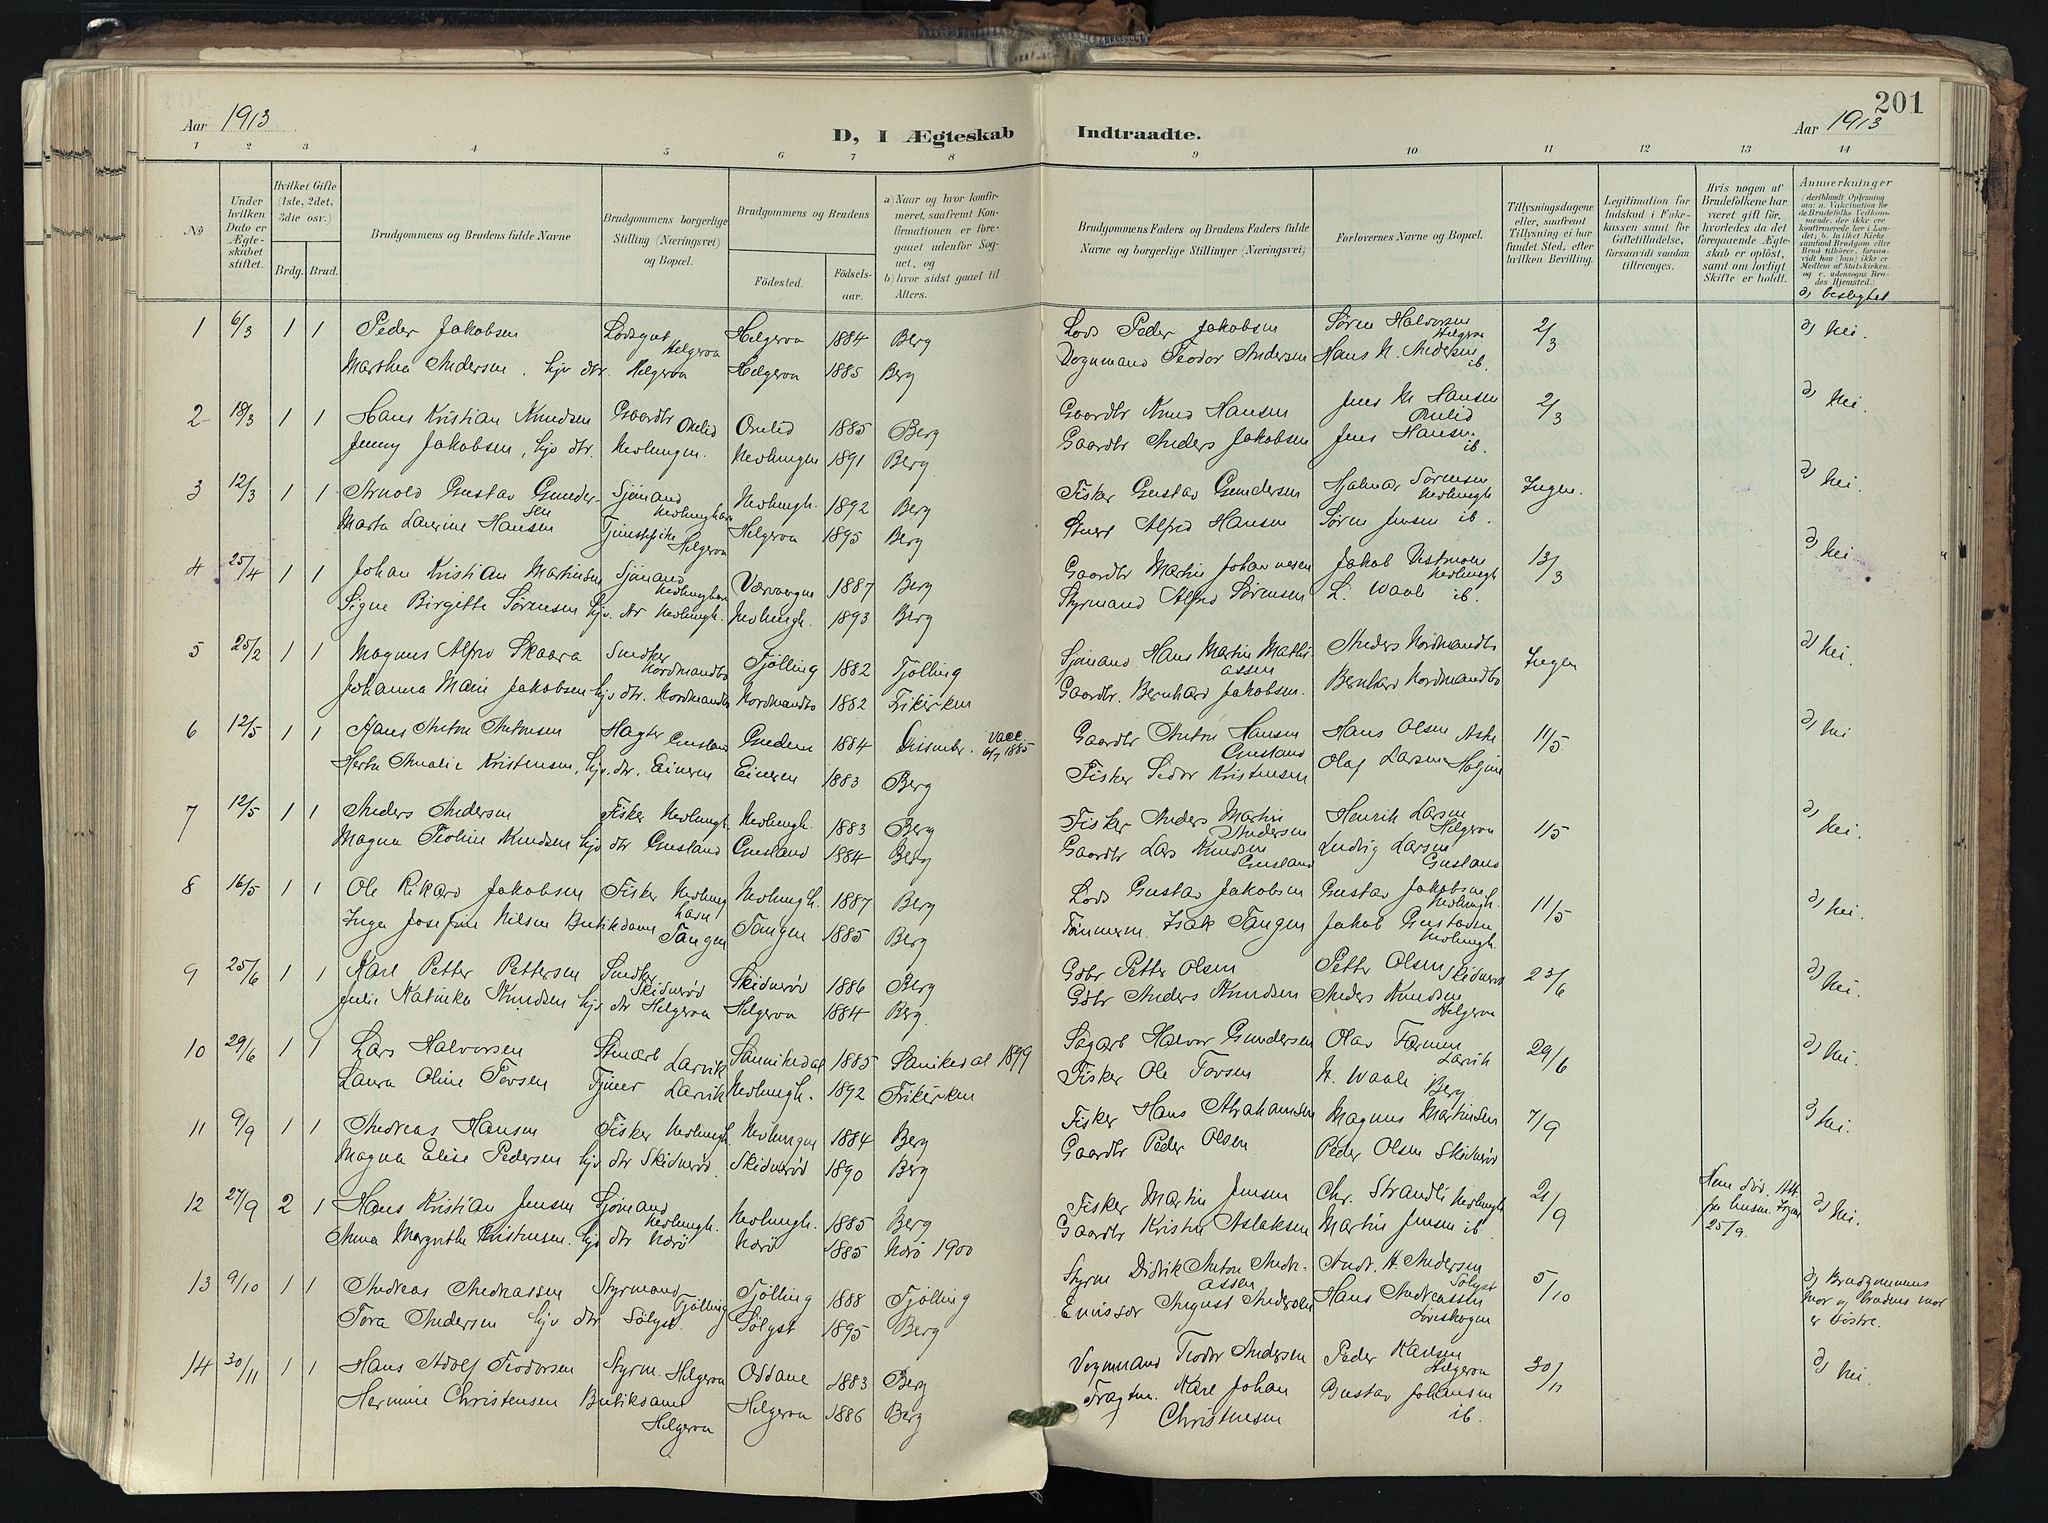 201
Aar 1913
D, I Ægteskab Indtraadte.
Aar 1913
1 2 3 4 5 6 7 8 9 10 11 12 13 14
№
Under hvilken Dato er Ægteskabet stiftet.
Hvilket Gifte (1ste, 2det, 3die osv.)
Brdg. Brud.
Brudgommens og Brudens fulde Navne
Brudgommens borgerlige Stilling (Næringsvei) og Bopæl.
Brudgommens og Brudens
Fødested.
Fødselsaar.
a) Naar og hvor konfirmeret, saafremt Konfirmationen er foregaaet udenfor Sognet, og
b) hvor sidst gaaet til Alters.
Brudgommens Faders og Brudens Faders fulde Navne og borgerlige Stillinger (Næringsvei)
Forlovernes Navne og Bopæl.
Tillysningsdagene eller, saafremt Tillysning ei har fundet Sted, efter hvilken Bevilling.
Legitimation for Indskud i Enkekassen samt for Giftetilladelse, forsaavidt saadan tiltrænges.
Hvis nogen af Brudefolkene har været gift før, hvorledes da det foregaaende Ægteskab er opløst, samt om lovligt Skifte er holdt.
Anmærkninger
(deriblandt Oplysning om: a. Vakcination for de Brudefolks Vedkommende, der ikke ere konfirmerede her i Landet; b. hvilket Kirkesamfund Brudgom eller Brud tilhører, forsaavidt han (hun) ikke er Medlem af Statskirken, og c. udensogns Brudes Hjemsted.
d, beslegtet
1 6/3 1 1 Peder Jakobsen Lodsgut Helgeroa Helgeroa 1884 Berg Lods Peder Jakobsen Søren Halvorsen Helgeroa 2/3 d, Nei
Marthea Andersen, hjv dtr. Helgeroa Helgeroa 1885 Berg Teodor Andersen Hans M. Andersen ib.
2 18/3 1 1 Hans Kristian Knudsen Gaardbr Omlid Omlid 1885 Berg Gaardbr Knud Hansen Jens M Hansen Omlid 2/3 d, Nei.
Jenny Jakobsen, hjv dtr. Nevlungh. Nevlungh 1891 Berg Gaardbr Anders Jakobsen Jens Hansen ib.
3 12/3 1 1 Arnold Gustav Gundersen Sjømand Nevlunghavn Nevlungh. 1892 Berg Fisker Gustav Gundersen Hjalmar Sørensen Nevlungh Ingen. d, Nei.
Marta Laurine Hansen Tjenestepike Helgeroa Helgeroa 1895 Berg Alfred Hansen Søren Jensen ib.
4 25/4 1 1 Johan Kristian Martinsen Sjømand Nevlunghavn Værvaagen 1887 Berg Gaardbr Martin Johannesen Jakob Nevlungh 13/3 d, Nei
Signe Birgitte Sørensen hjv. dtr Nevlungh. Nevlungh. 1893 Berg Styrmand Alfred Sørensen L. Waale ib.
5 25/2 1 1 Magnus Alfred Skaara Snedker Nordmandbo Tjølling 1882 Tjølling Sjømand Hans Martin Mathiassen Anders Nordmandbo Ingen d, Nei.
Johanna Marie Jakobsen hjv dtr. Nordmandbo Nordmandbo 1882 Frikirken Gaardbr. Bernhard Jakobsen. Bernhard Nordmandbo
6 12/5 1 1 Hans Anton Antonsen Gusland 1884 Dissenter. Vacc. 6/7 1885 Gaardbr Anton Hansen Gusland Hans Olsen Aske 11/5 d, Nei
Herta Amalie Kristensen, hjv. dtr. Eineren Eineren 1883 Berg Fisker Kristensen Olaf Larsen
7 12/5 1 1 Anders Andersen Fisker Nevlungh. Nevlungh. 1883 Berg Fisker Anders Martin Andersen Henrik Larsen Helgeroa 11/5 d, Nei.
Magna Teoline Knudsen hjv dtr Gusland Gusland 1884 Berg Gaardbr Lars Knudsen Gusland Ludvig Larsen Gusland
8 16/5 1 1 Ole Rikard Jakobsen Fisker Nevlunghavn Nevlungh. 1887 Berg Lods Gustav Jakobsen Gustav Jakobsen Nevlungh. 11/5 d, Nei.
Inga Josefine Nilsen Butikdame Tangen Tangen 1885 Berg Tømmerm. Isak Tangen Jakob Gustavsen Nevlungh.
9 25/6 1 1 Karl Petter Pettersen Snedker Skidnerød Skidnerød 1886 Berg Gdbr Petter Olsen Petter Olsen Skidnerød 23/6 d, Nei.
Julie Katinka Knudsen hjv dtr Helgeroa Helgeroa 1884 Berg. Gdbr Anders Knudsen Anders Knudsen Helgeroa
10 29/6 1 1 Lars Halvorsen Larvik Sannikedal 1885 Sanikedal 1899 Halvor Gundersen Olav Larvik 29/6 d, Nei.
Laura Oline Torsen Tjener Larvik Nevlungh. 1892 Frikirken Fisker Ole Torsen N. Waale Berg
11 9/9 1 1 Andreas Hansen Fisker Nevlungh. Nevlungen 1884 Berg Fisker Hans Abrahamsen Magnus Martinsen 7/9 d, Nei.
Magna Elise Pedersen hjv dtr Skidnerød Skidnerød 1890 Berg Gaardbr Peder Olsen Peder Olsen Skidnerød
12 27/9 2 1 Hans Kristian Jensen Sjømand Nevlungh. Nevlungh. 1885 Berg Fisker Martin Jensen Chr. Strandli Nevlungh 21/9 d, Nei. 25/9.
Anna Margrethe Kristensen. hjv dtr Norø Norø 1885 Norø 1900 Gaardbr Kristen Aslaksen Martin Jensen ib.
13 9/10 1 1 Andreas Andreassen Styrmand Tjølling Tjølling 1888 Tjølling Styrm Didrik Anton Andreassen Andr. A. Andersen Sølyst 5/10 d, Brudgommens mor og brudens mor er søstre.
Tora Andersen hjv dtr Sølyst. Sølyst 1895 Berg Emissær August Andersen Hans Andreassen Løveskogen
14 30/11 1 1 Hans Adolf Teodorsen Styrm. Helgeroa Oddane 1883 Berg Teodor Andersen Peder Karlsen Helgeroa 30/11 d, Nei.
Hermine Christensen Butiksdame Helgeroa Helgeroa 1886 Berg Fragtm. Karl Johan Christensen Gustav Johansen ib.